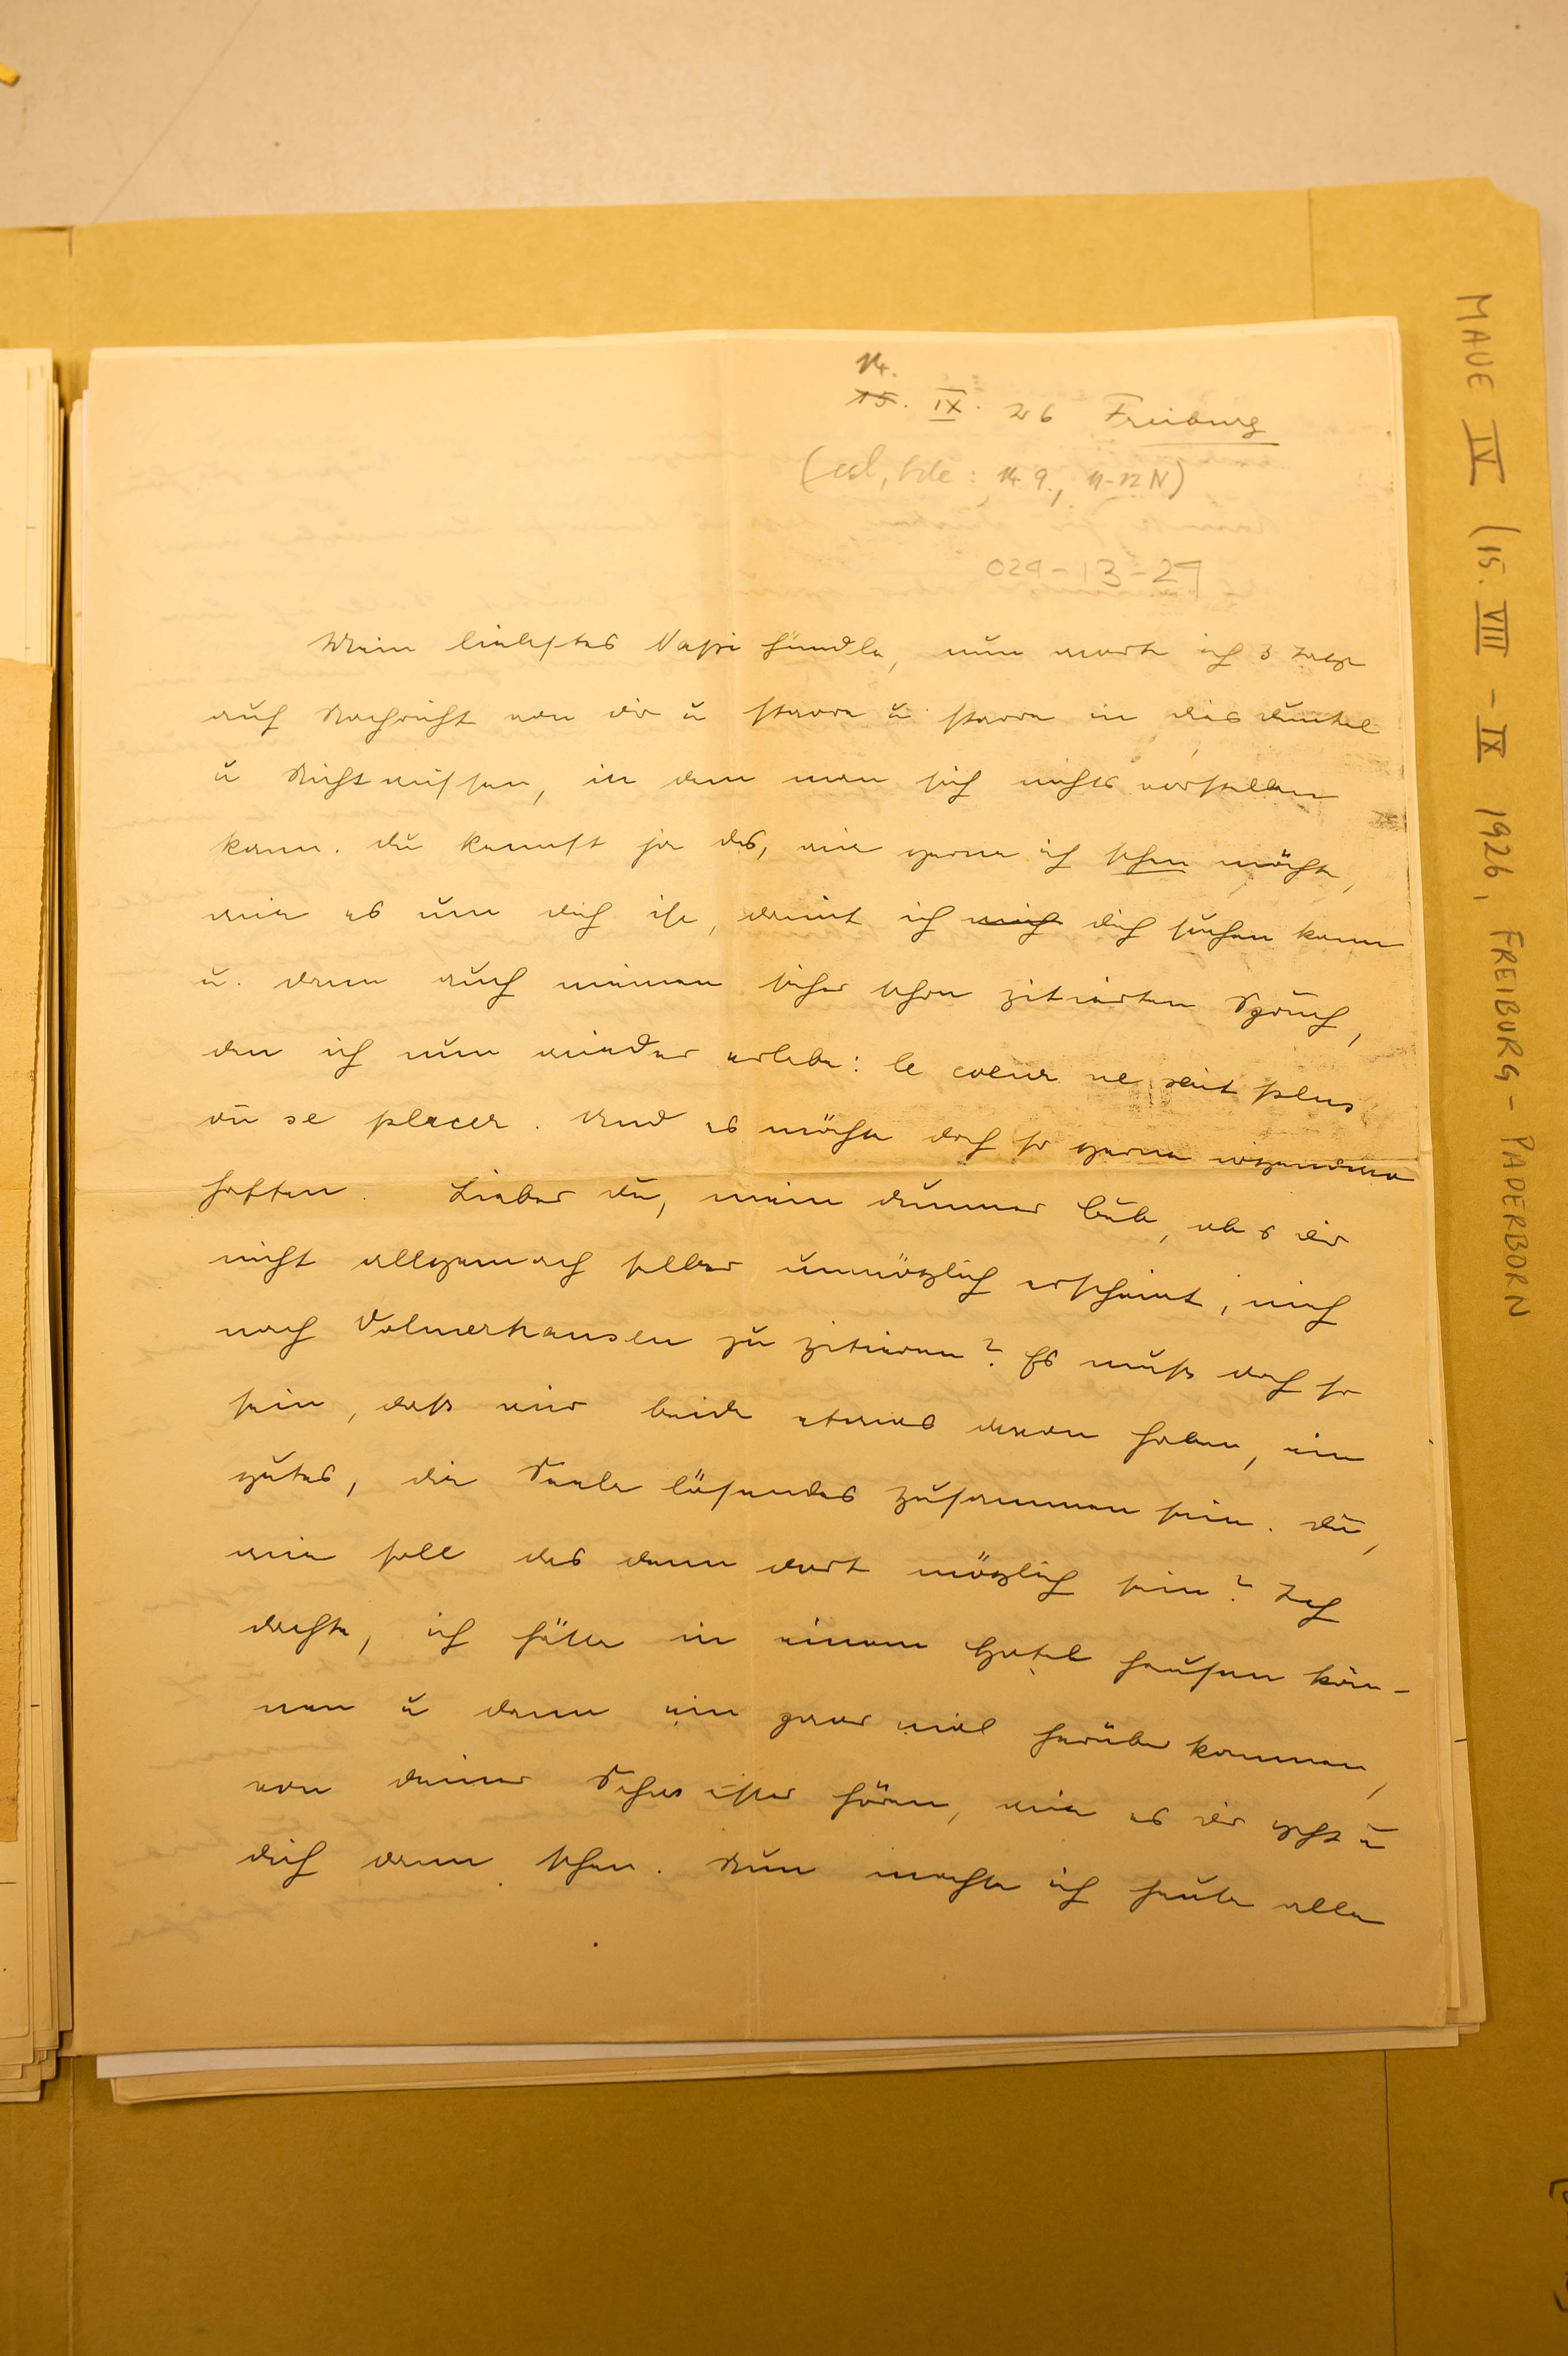 14.
15. IX. 26 Freiburg
(14. 9., 11-12 N)
029-13-29
Mein liebstes Hündle, nun warte ich 3 Tage
auf Nachricht von dir u starre u starre in das Dunkel
u Nichtwissen, in dem man sich nichts vorstellen
kann. Du kennst ja das, wie gerne ich sehen möchte,
wie es um dich ist, damit ich mich dich suchen kann
u. dann auch meinen sicher schon zitierten Spruch,
den ich nun wieder erlebe: le coeur ne sait plus
où se placer. Und es möchte doch so gerne irgendwo
haften. Lieber du, mein dummer Bub, ob s dir
nicht allgemach selber unmöglich erscheint, mich
nach Volmerhausen zu zitieren? Es muß doch so
sein, daß wir beide etwas davon haben, ein
gutes, die Seele lösendes Zusammensein. Du,
wie soll das denn dort möglich sein? Ich
dachte, ich hätte in einem Hotel hausen kön-
nen u dann ein paar mal herüber kommen,
von deiner Schwester hören, wie es dir geht u
dich dann sehen. Nun machte ich heute alle
MAUE IV (15. VIII - IX 1926, FREIBURG - PADERBORN